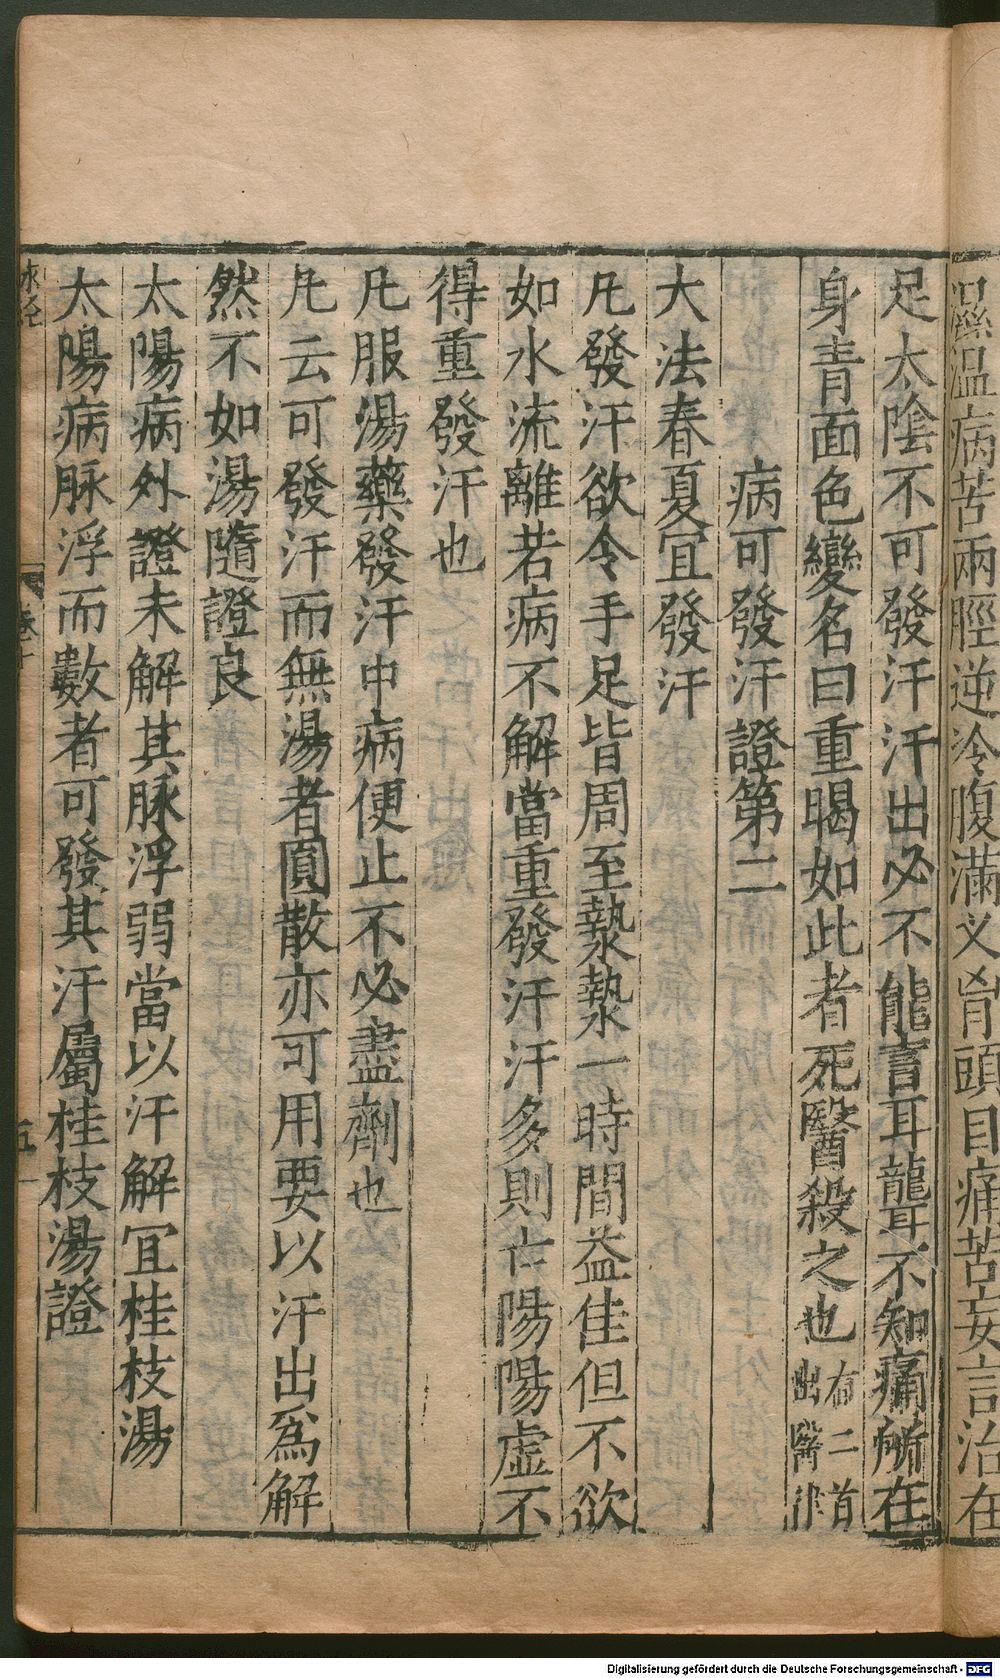 濕溫病苦兩脛逆冷腹滿叉胷頭目痛苦妄言治在
足太陰不可發汗汗出必不能言耳聾不知痛所在
身青面色變名曰重暍如此者死醫殺之也右二首出醫律
病可發汗證第二
大法春夏宜發汗
凡發汗欲令手足皆周至漐漐一時間益佳但不欲
如水流離若病不解當重發汗汗多則亡陽陽虛不
得重發汗也
凡服湯藥發汗中病便止不必盡劑也
凡云可發汗而無湯者圓散亦可用要以汗出爲解
然不如湯隨證良
太陽病外證未解其脉浮弱當以汗解宜桂枝湯
太陽病脉浮而數者可發其汗屬桂枝湯證
脉經
卷七
五
Digitalisierung gefördert durch die Deutsche Forschungsgemeinschaft - DFG